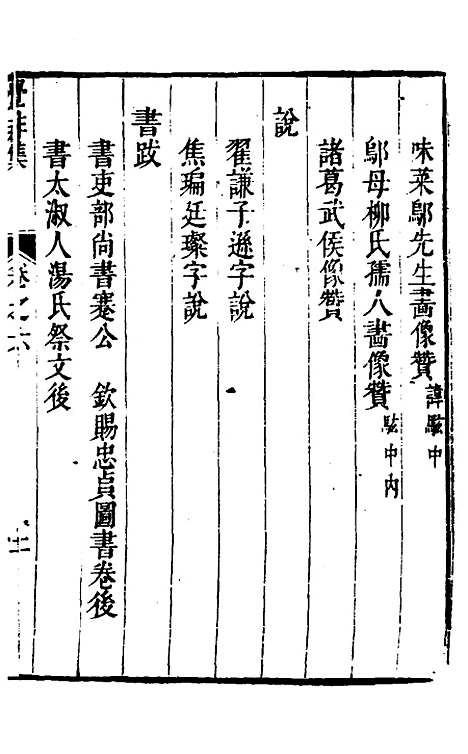 味菜鄔先生畵像贊 諱駇中
鄔母柳氏孺人畵像贊 駇中內
諸葛武侯像贊
說
翟謙子遜字說
焦瑞廷璨字說
書跋
書吏部尚書蹇公 欽賜忠貞圖書卷後
書太淑人湯氏祭文後
卷之六